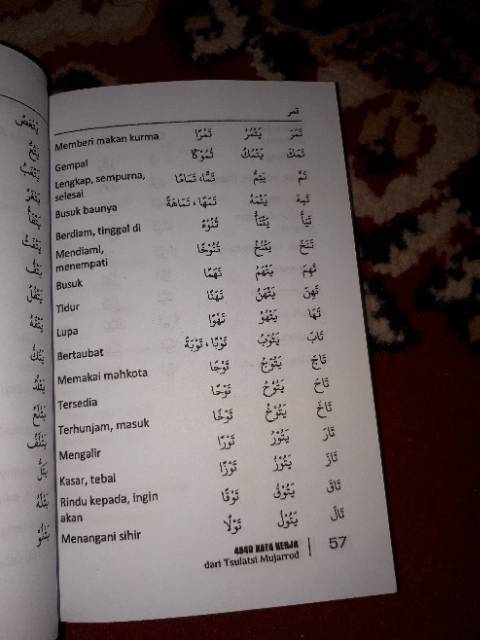 تمر
تَمَرَ يَتْمُرُ تَمْرًا Memberi makan kurma
تَمَكَ يَتْمُكُ تُمُوْكًا Gempal
تَمَّ يَتِمُّ تَمًّا، تَمَامًا Lengkap, sempurna,
selesai
تَمِهَ يَتْمَهُ تَمَهًا، تَمَاهَةً Busuk baunya
تَنَأَ يَتْنَأُ تُنُوْءً Berdiam, tinggal di
تَنَخَ يَتْنُخُ تُنُوْخًا Mendiami,
menempati
تَهِمَ يَتْهَمُ تَهَمًا Busuk
تَهِنَ يَتْهَنُ تَهَنًا Tidur
تَهَا يَتْهُوْ تَهْوًا Lupa
تَابَ يَتُوْبُ تَوْبًا، تَوْبَةً Bertaubat
تَاجَ يَتُوْجُ تَوْجًا Memakai mahkota
تَاحَ يَتُوْحُ تَوْحًا Tersedia
تَاخَ يَتُوْخُ تَوْخًا Terhunjam, masuk
تَارَ يَتُوْرُ تَوْرًا Mengalir
تَازَ يَتُوْزُ تَوْزًا Kasar, tebal
تَاقَ يَتُوْقُ تَوْقًا Rindu kepada, ingin
akan
تَالَ يَتُوْلُ تَوْلًا Menangani sihir
4840 KATA KERJA
dari Tsulatsi Mujarrod
57